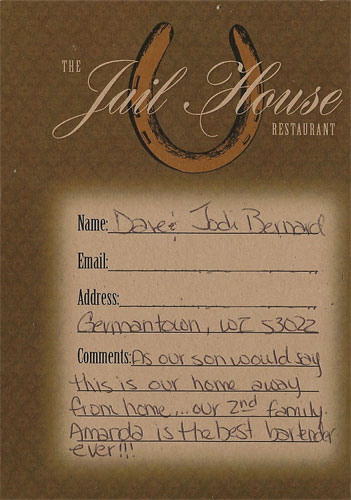 THE
Jail House
RESTAURANT
Name: Dave & Jodi Bernard
Email:
Address:
Germantown, WI 53022
Comments: As our son would say
this is our home away
from home...our 2nd family.
Amanda is the best bartender
ever!!!